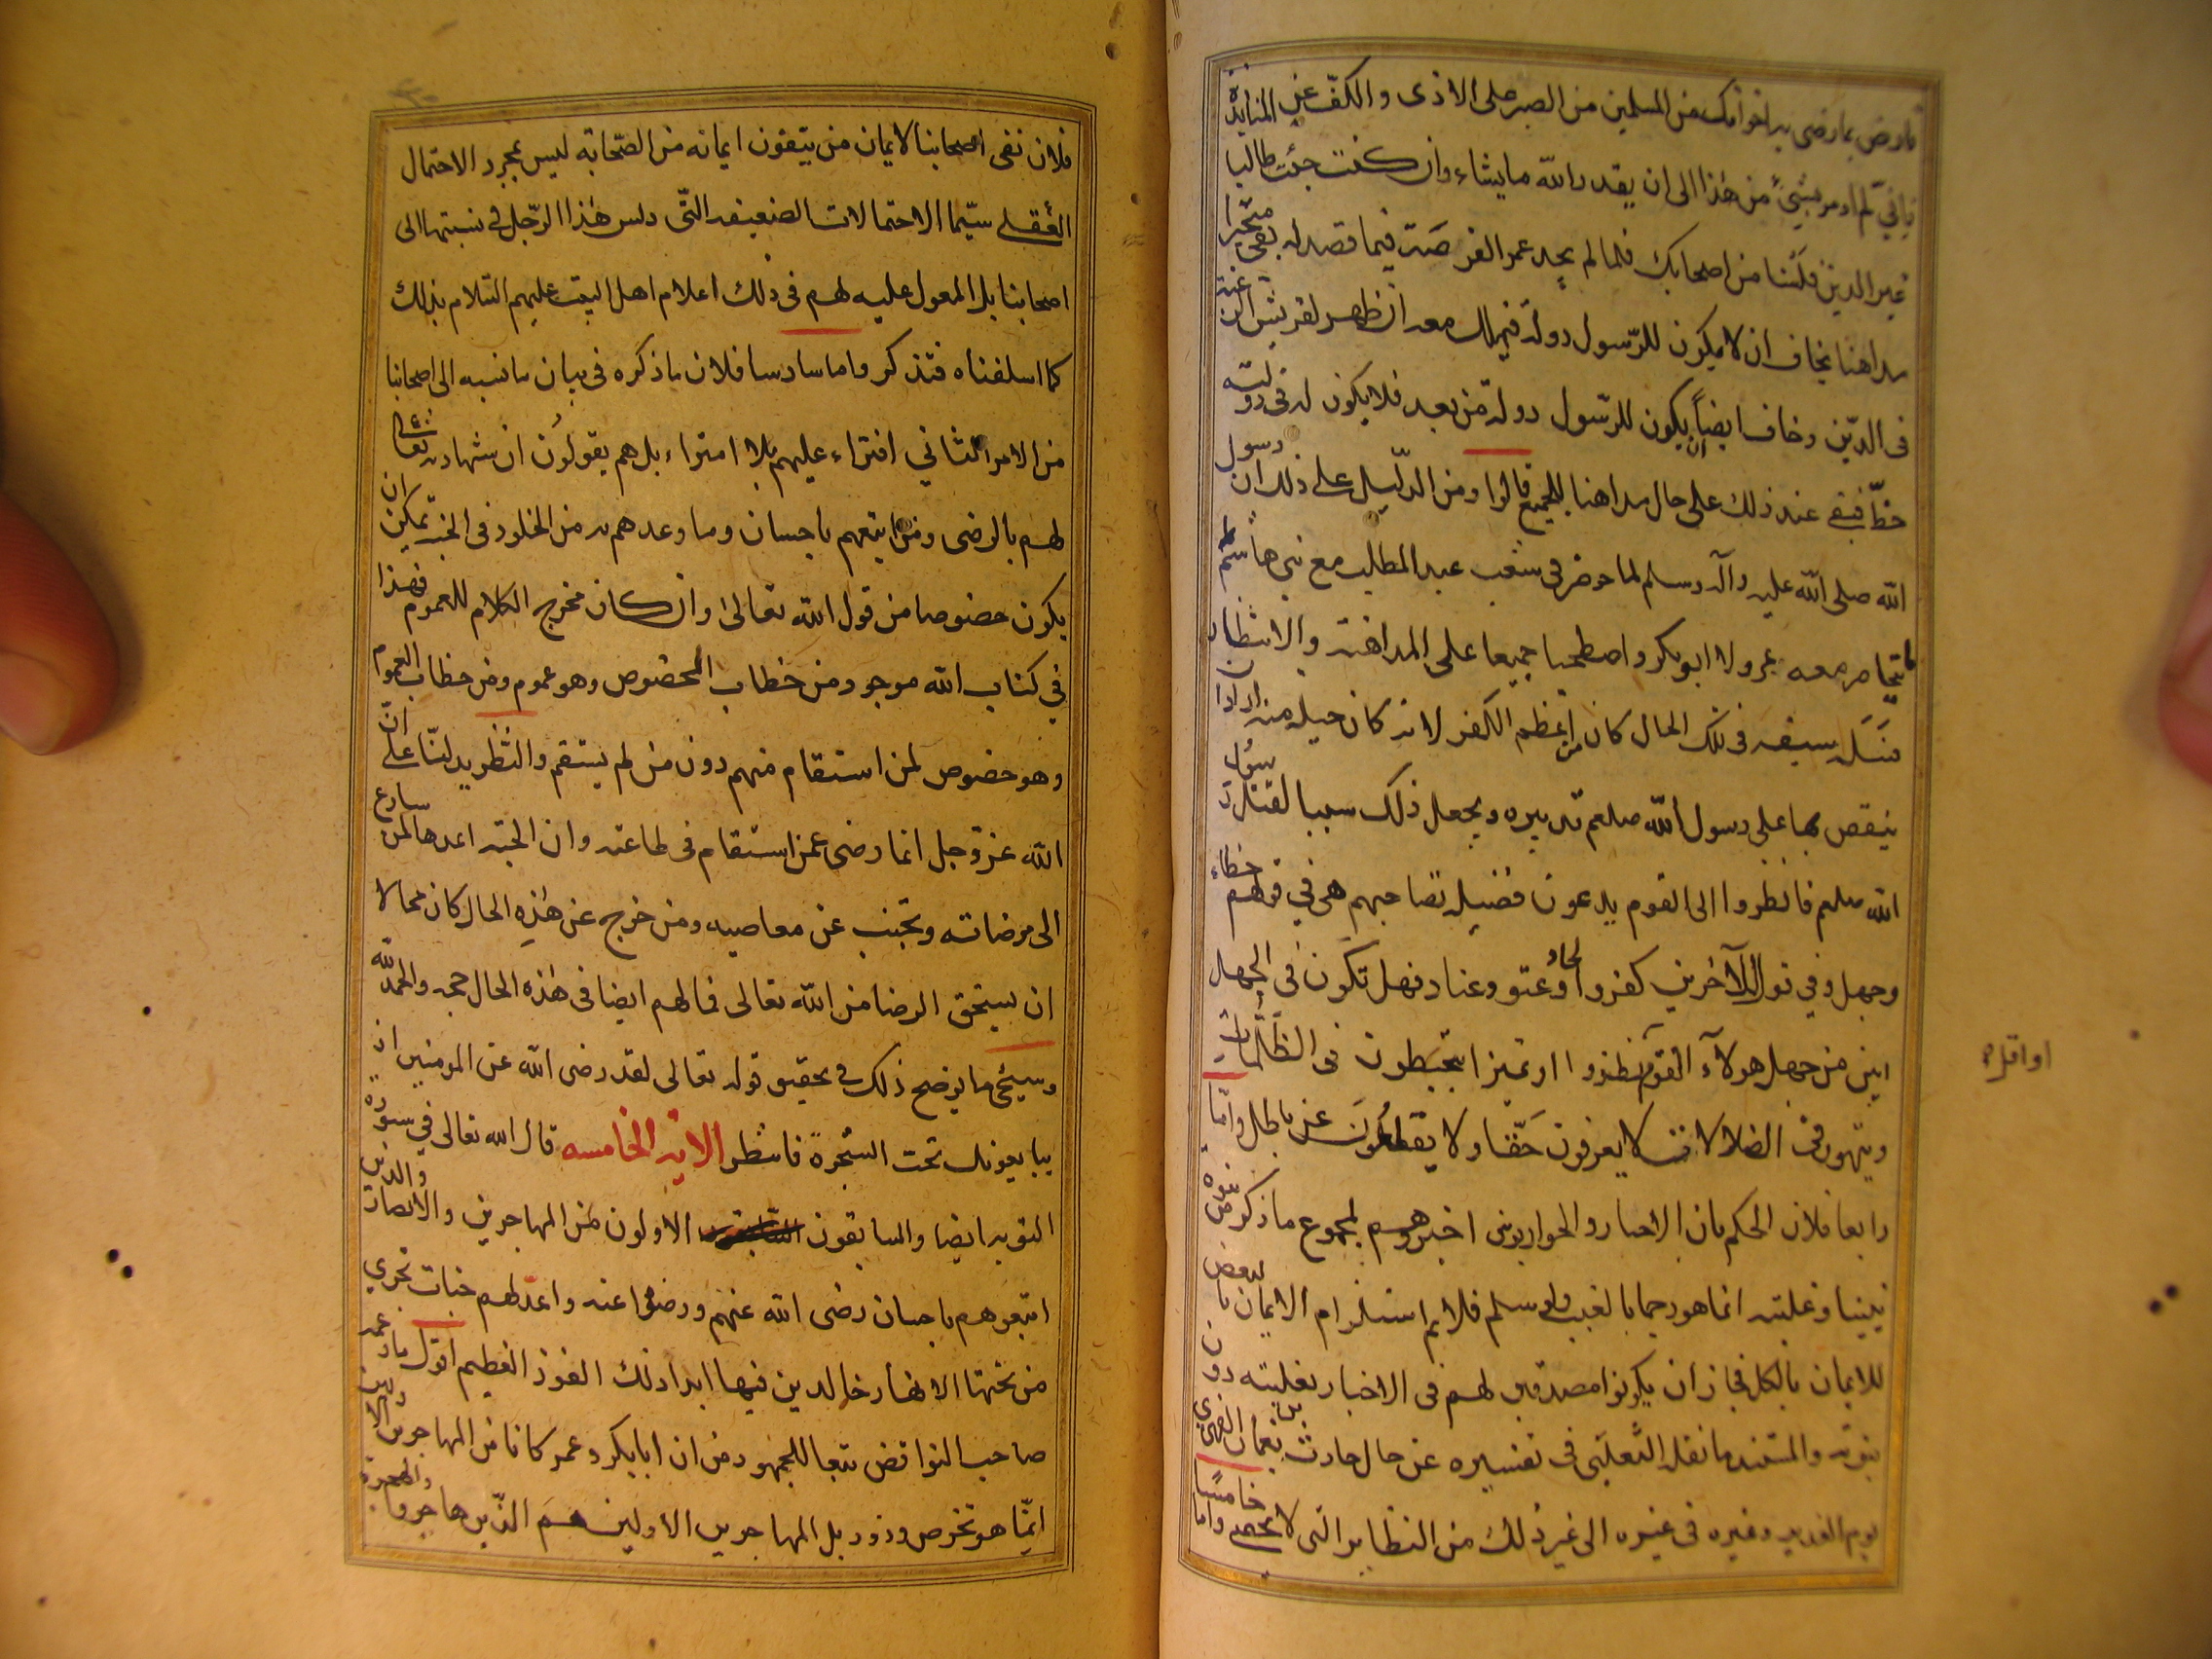 فارض بما رضي به اخوانك من المسلمين من الصبر على الاذى والكف عن المنابذة
فاني لم اومر بشئ من هذا الى ان يقدر الله ما يشاء وان كنت جئت طالبا
غير الدين فلسنا من اصحابك فلما لم يجد عمر الفرصة فيما قصد له بقى متحيرا
مداهنا يخاف ان لا يكون للرسول دولة فيهلك معه ان ظهر لقريش الرغبة
في الدين وخاف ايضا ان يكون للرسول دولة من بعد فلا يكون له في دولته
حظ فبقى عند ذلك على حال مداهنا للجميع قالوا ومن الدليل على ذلك ان رسول
الله صلى الله عليه وآله وسلم لما حوصر في شعب عبد المطلب مع بني هاشم لم
يحاصر معه عمر ولا ابو بكر واصطحبا جميعا على المداهنة والانتظار
فسل سيفه في تلك الحال كان من اعظم الكفر لانه كان حيلة منه اراد ان
ينقض بها على رسول الله صلعم تدبيره ويجعل ذلك سببا لقتل رسول
الله صلعم فانظروا الى القوم يدعون فضيلة لصاحبهم هي في قولهم خطاء
وجهل وفي قول الآخرين كفر والحاد وعتو وعناد فهل تكون في الجهل
ابين من جهل هولآء القوم نظروا او تميزا يتخبطون في الظلمات
ويتيهون في الضلالات لا يعرفون حقا ولا يقطعون عن باطل واما
رابعا فلان الحكم بان الاحبار والحواريون اخبروهم بمجموع ما ذكر من نبوة
نبينا وغلبته انما هو رجما بالغيب ولو سلم فلا يم استلزام الايمان بالبعض
للايمان بالكل فجاز ان يكونوا مصدقين لهم في الاخبار بغلبته دون
نبوته والمستند ما نقله الثعلبي في تفسيره عن حال حارث بن نعمان الفهري
يوم الغدير وغيره في غيره الى غير ذلك من النظاير التي لا تحصى واما خامسا
او اقل ه
فلان نفى اصحابنا لايمان من يتيقون ايمانه من الصحابة ليس بمجرد الاحتمال
العقلي سيما الاحتمالات الضعيفة التي دلس هذا الرجل في نسبتها الى
اصحابنا بل المعول عليه لهم في ذلك اعلام اهل البيت عليهم السلام بذلك
كما اسلفناه فتذكر واما سادسا فلان ما ذكره في بيان ما نسبه الى اصحابنا
من الامر الثاني افتراء عليهم بلا امتراء بل هم يقولون ان شهادته تعالى
لهم بالرضى ومن اتبعهم باحسان وما وعدهم به من الخلود في الجنة يمكن ان
يكون خصوصا من قول الله تعالى وان كان مخرج الكلام للعموم فهذا
في كتاب الله موجود من خطاب الخصوص وهو عموم ومن خطاب العموم
وهو خصوص لمن استقام منهم دون من لم يستقم والنظر يدلنا على ان
الله عز وجل انما رضى عمن استقام في طاعته وان الجنة اعدها لمن سارع
الى مرضاته وتجنب عن معاصيه ومن خرج عن هذه الحال كان محالا
ان يستحق الرضا من الله تعالى فما لهم ايضا في هذه الحال حجة والحمد لله
وسيجئ ما يوضح ذلك في تحقيق قوله تعالى لقد رضى الله عن المومنين اذ
يبايعونك تحت الشجرة فانتظر الاية الخامسه قال الله تعالى في سورة
التوبه ايضا والسابقون الاولون من المهاجرين والانصار والذين
اتبعوهم باحسان رضى الله عنهم ورضوا عنه واعد لهم جنات تجري
من تحتها الانهار خالدين فيها ابدا ذلك الفوز العظيم اقول ما زعمه
صاحب النواقض تبعا للجمهور من ان ابابكر وعمر كانا من المهاجرين الاولين
انما هو تخرص وزور بل المهاجرين الاولين هم الذين هاجروا الهجرة